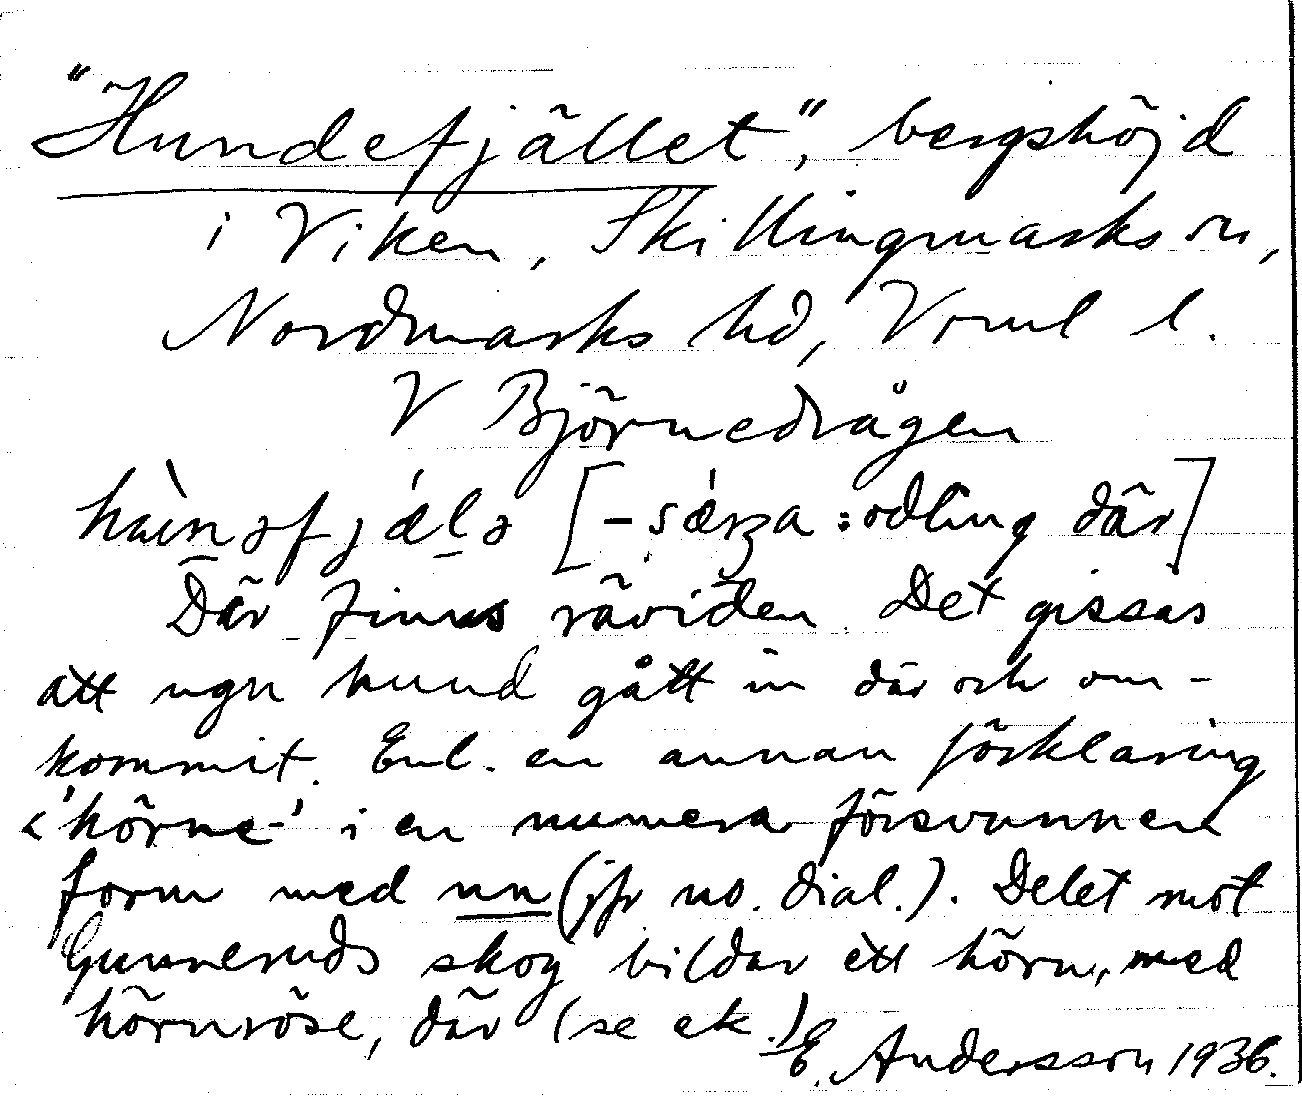 "Hundefjället", bergshöjd
i Viken, Skillingmarks sn,
Nordmarks hd, Vrml l.
V Björnedrågen
hùnəfjǽlə [-sǽrza : odling där]
Där finns räviden. Det gissas
att ngn hund gått in där och om-
kommit. Enl. en annan förklaring
< 'hörne-' i en numera försvunnen
form med nn (jfr no. dial.). Delet mot
Gunneruds skog bildar ett hörn, med
hörnröse, där (se ek.)
E. Andersson 1936.